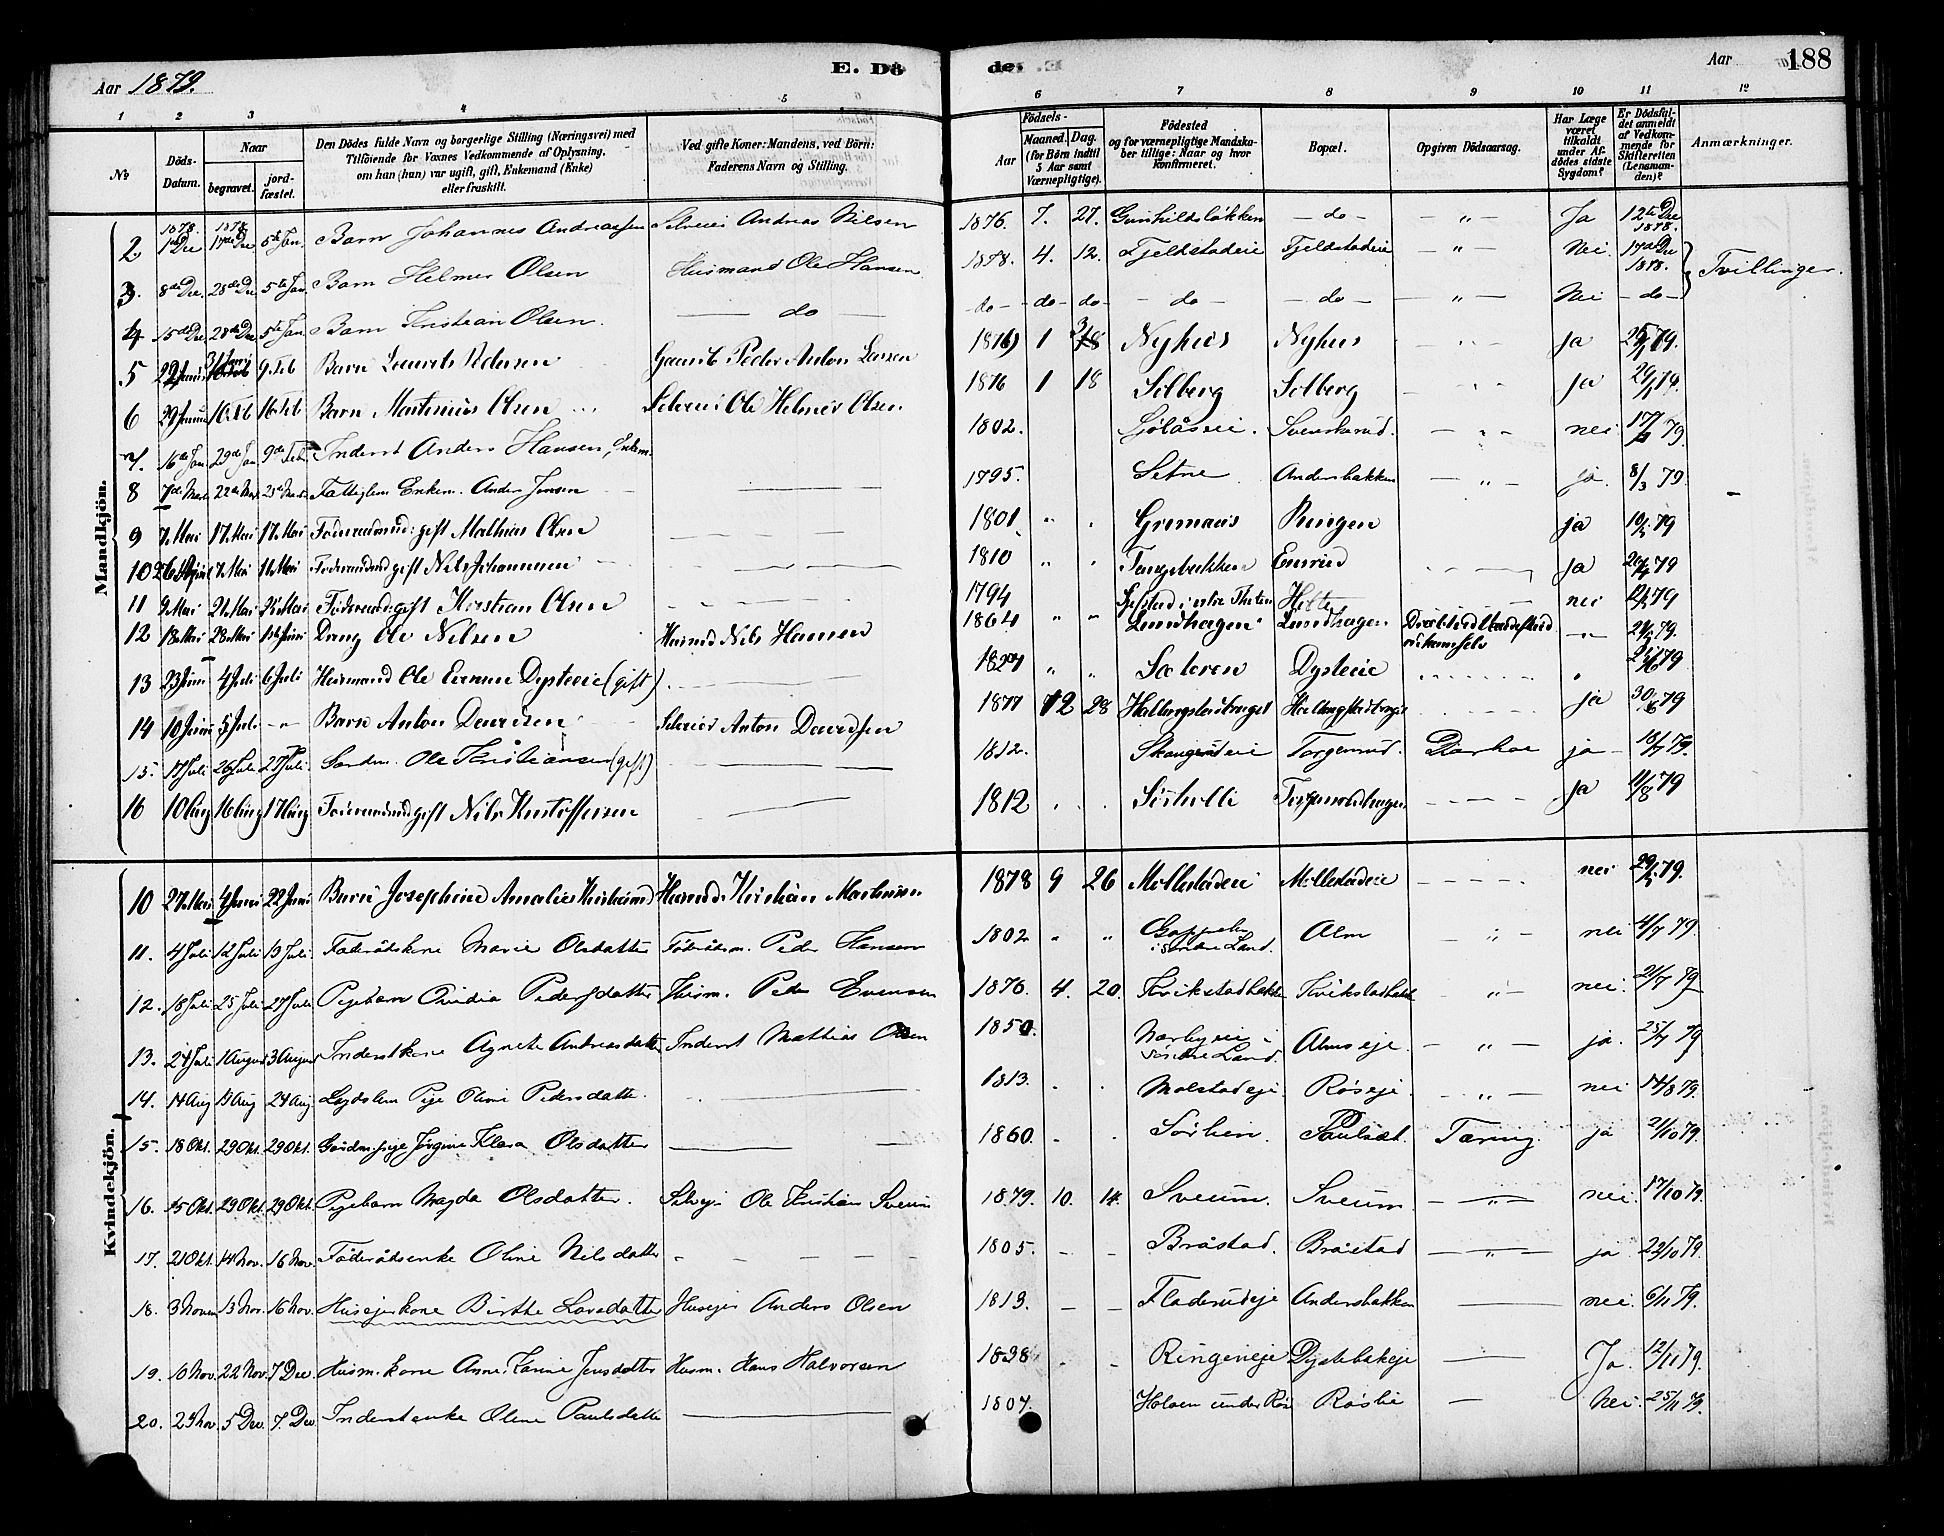 Aar 1879.
E. Dö
de. E
Aar
188
1 2 3 4 5 6 7 8 9 10 11 12
No
Döds-Datum.
Naar
begravet.
jord-fæstet.
Den Dödes fulde Navn og borgerlige Stilling (Næringsvei) med
Tilföiende for Voxnes Vedkommende af Oplysning,
om han (hun) var ugift, gift, Enkemand (Enke)
eller fraskilt.
Ved gifte Koner: Mandens, ved Börn:
Faderens Navn og Stilling.
Födsels-
Aar
Maaned. Dag.
(for Börn indtil
5 Aar samt
Værnepligtige).
Födested
og for værnepligtige Mandska-
ber tillige: Naar og hvor
konfirmeret.
Bopæl.
Opgiven Dödsaarsag.
Har Læge
været
tilkaldt
under Af-
dödes sidste
Sygdom?
Er Dödsfal-
det anmeldt
af Vedkom-
mende for
Skifteretten
(Lensman-
den)?
Anmærkninger.
Mandkjön.
2. 1878. 1ste Dec 1878 17de Dec 5te Jan. Barn Johannes Andreassen Selveier Andreas Nilsen 1876. 7. 27. Gunhildsløkken - do - - " - Ja 12te Dec 1878.
3. 8de Dec. 28de Dec. 5te Jan. Barn Helmer Olsen Husmand Ole Hansen 1878. 4. 12. Fjeldstadeie Fjeldstadeie - " - Nei 17de Dec 1878. Tvillinger.
4 15de Dec 28de Dec. 5te Jan. Barn Kristian Olsen. - do - do - do - do - - do - - do - - " - Nei - do -
5 9. Feb Barn Laurits Pedersen Gaardb. Peder Anton Larsen 1 Nyhus Nyhus ja
6 16. Feb 16. Feb Barn Martinius Olsen Selveier Ole Helmer Olsen 1876 1 18 Solberg Solberg ja 29/1 79.
7. 16de Jan 29de Jan 9de Feb. Inderst Anders Hansen, Enkem. 1802. nei
8 7de Marts 22de Mar. 23de Marts Fattiglem Enkem. Anders Jensen 1795. Setne Andersbakken - " - ja. 8/3 79.
9 7. Mai 17. Mai 17. Mai Föderaadsmd: gift Mathias Olsen 1801 Ringen ja 10/5 79
10 26 April 7. Mai 11. Mai Föderaadsmd gift Nils Johannesen 1810 Ensrud ja 79
11 9. Mai 21. Mai 25. Mai Föderaadsmd: gift Kristian Olsen 1794 nei 79
12 18. Mai 28. Mai Dreng Ole Nilsen Husmd Nils Hansen 1864 " " Lundhagen Lundhagen 79.
13 23 Juni 4 Juli 6 Juli Husmand Ole Evensen Dysteeie (gift) " " Sæteren Dysteeie 79
14 10 Juni 5 Juli - " - Barn Anton Davidsen Selveier Anton Davidsen 1877 12 28 ja 30/6 79
15. 17 Juli 26 Juli 27 Juli Ole Kristiansen (gift) 1812. Torgerrud. ja 18/7 79.
16 10 Aug 16 Aug 17 Aug Föderaadsmd gift Nils Kristoffersen 1812 ja 11/8 79
Kvindekjön.
10 27. Mai 4 Juni 22 Juni Barn Josephine Amalie Husmd. Kristian Martinsen 1878 9 26 Möllestadeie Möllestadeie nei 29/5 79.
11. 4 Juli 12 Juli 13 Juli Föderådskone Marie Olsdatter Föderådsm. Peder Hansen 1802 " i Søndre Land. Alm - " - nei 4/7 79.
12. 18 Juli 25 Juli 27 Juli Pigebarn Ovidia Pedersdatter Husm. Peder Evensen 1876. 4. 20. Kvikstadbakke Kvikstadbakke - " - nei. 21/7 79
13. 24 Juli 1 August 3 August Inderstkone Agnete Andreasdatter Inderst Mathias Olsen 1850. i Søndre Land. Almseje. - " - ja. 25/7 79
14. 14 Aug 19 Aug 24 Aug Lægdslem Pige Oline Pedersdatter 1813. Molstadeje Röseje - " - nei 14/8 79.
15. 18 Okt. 29 Okt. 29 Okt. Gaardm.pige Jörgine Klara Olsdatter 1860. Sörlien. Paulsæt. Tæring. ja 21/10 79.
16. 15 Okt. 29 Okt. 29 Okt. Pigebarn Magda Olsdatter. Selvej. Ole Kristian Sveum 1879. 10. 14. Sveum. Sveum. - " - nei. 17/10 79.
17. 21 Okt. 14 Nov. 16 Nov. Föderådsenke Oline Nilsdatter 1805. Bråstad. Bråstad - " - ja 22/10 79.
18. 3 Novem 13 Nov. 16 Nov. Husejerkone Birthe Larsdatter Husejer Anders Olsen 1813. Fladerudeje Andersbakken nei. 6/11 79.
19. 10 Nov. 22 Nov. 7 Dec. Husm.kone Anne Karine Jensdatter Husm. Hans Halvorsen 1838 Ringeneje Ja. 12/11 79.
20. 23 Nov. 5 Dec 7. Dec Inderstenke Oline Paulsdatter 1807. Nei 25/11 79.